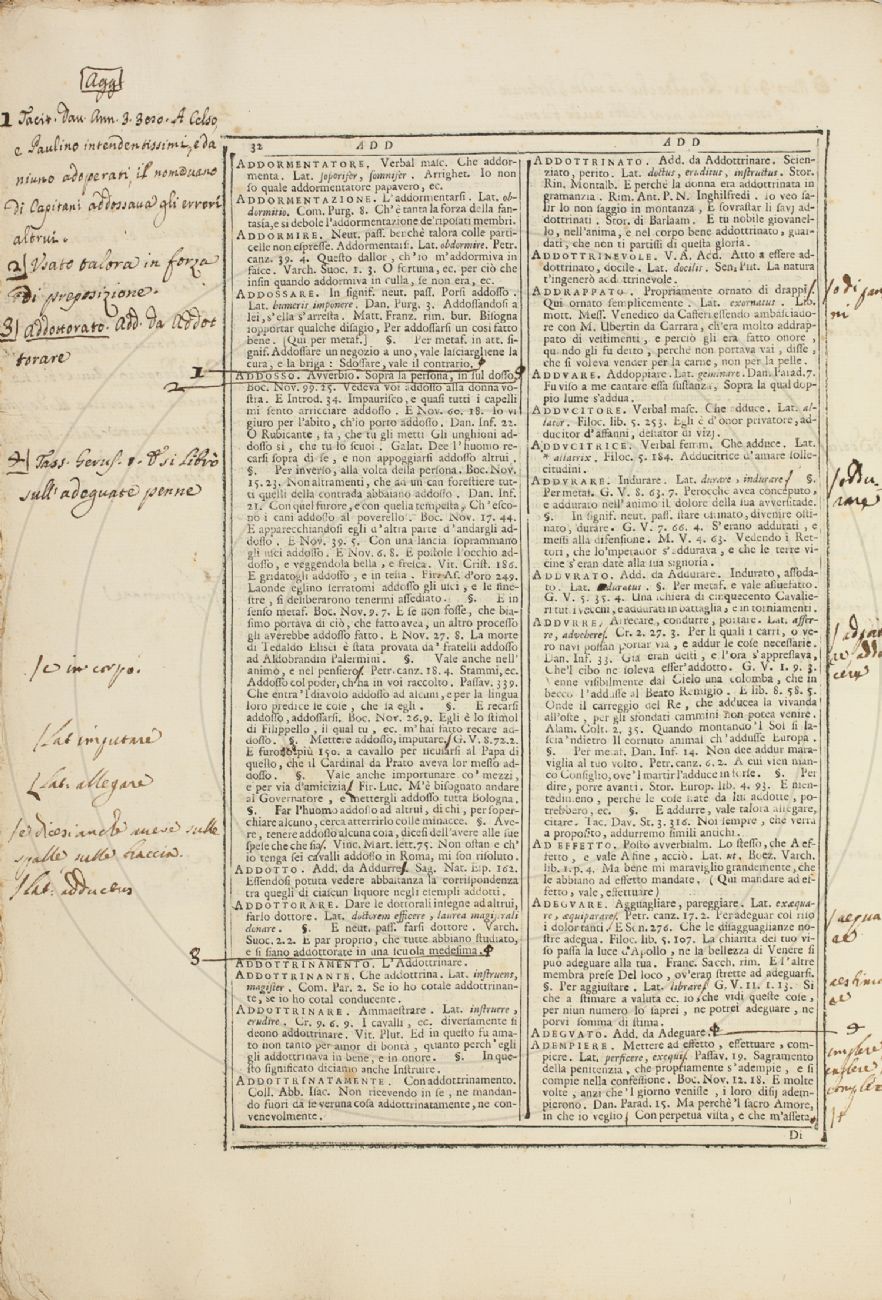 Agg
1 Tacit. Dav. Ann. 3. 300. A Celso,
e Paulino intendentissimi, e da
niuno adoperati, il nome vano
di Capitani addossava gli errori
altrui.
2 Usato talora in forza
di preposizione.
3 Addottorato. Add. da Addot
torare
4 Tass. Gerus. 1. E si librò
sull'adeguate penne
1
2
se in corpo.
Lat imputare
Lat. allegare
se dicesi anche avere sulle
spalle sulle braccia.
lat. adducens
3
32 ADD
ADDORMENTATORE. Verbal masc. Che addor-
menta. Lat. soporifer, somnifer. Arrighet. Io non
so quale addormentatore papavero, ec.
ADDORMENTAZIONE. L'addormentarsi. Lat. ob-
dormitio. Com. Purg. 8. Ch'è tanta la forza della fan-
tasia, e si debole l'addormentazione de' ripolati membri.
ADDORMIRE. Neut. pass. benchè talora colle parti-
celle non espresse. Addormentarsi. Lat. obdormire. Petr.
canz. 39. 4. Questo dallor, ch'io m'addormiva in
fasce. Varch. Suoc. 1. 3. O fortuna, ec. per ciò che
insin quando addormiva in culla, se non era, ec.
ADDOSSARE. In signif. neut. pass. Porsi addosso.
Lat. humeris imponere. Dan. Purg. 3. Addossandosi a
lei, s'ella s'arresta. Matt. Franz. rim. bur. Bisogna
sopportar qualche disagio, Per addossarsi un così fatto
bene. [Qui per metaf.] §. Per metaf. in att. si-
gnif. Addossare un negozio a uno, vale lasciarghene la
cura, e la briga: Sdossare, vale il contrario.
ADDOSSO. Avverbio. Sopra la persona, in sul dosso.
Boc. Nov. 99. 25. Vedeva voi addosso alla donna vo-
stra. E Introd. 34. Impaurisco, e quasi tutti i capelli
mi sento arricciare addosso. E Nov. 60. 18. Io vi
giuro per l'abito, ch'io porto addosso. Dan. Inf. 22.
O Rubicante, fa, che tu gli metti Gli unghioni ad-
dosso sì, che tu lo scuoi. Galat. Dee l'huomo re-
carsi sopra di se, e non appoggiarsi addosso altrui.
§. Per inverso, alla volta della persona. Boc. Nov.
15. 23. Non altramenti, che ad un can forestiere tut-
ti quelli della contrada abbaiano addosso. Dan. Inf.
21. Con quel furore, e con quella tempesta, Ch'esco-
no i cani addosso al poverello. Boc. Nov. 17. 44.
E apparecchiandosi egli d'altra parte d'andargli ad-
dosso. E Nov. 39. 5. Con una lancia sopramano
gli usci addosso. E Nov. 6. 8. E postole l'occhio ad-
dosso, e veggendola bella, e fresca. Vit. Crist. 186.
E gridatogli addosso, e in testa. Fir. As. d'oro 249.
Laonde eglino serratomi addosso gli usci, e le fine-
stre, si deliberarono tenermi assediato. §. E in
senso metaf. Boc. Nov. 9. 7. E se non fosse, che bia-
simo portava di ciò, che fatto avea, un altro processo
gli averebbe addosso fatto. E Nov. 27. 8. La morte
di Tedaldo Elisei è stata provata da' fratelli addosso
ad Aldobrandin Palermini. §. Vale anche nell'
animo, e nel pensiero. Petr. canz. 18. 4. Stammi, ec.
Addosso col poder, ch'ha in voi raccolto. Passav. 339.
Che entra 'l diavolo addosso ad alcuni, e per la lingua
loro predice le cose, che ha egli. §. E recarsi
addosso, addossarsi. Boc. Nov. 26. 9. Egli è lo stimol
di Filippello, il qual tu, ec. m'hai fatto recare ad-
dosso. §. Mettere addosso, imputare. G. V. 8. 72. 2.
E furono più 150. a cavallo per iscusarsi al Papa di
questo, che il Cardinal da Prato aveva lor messo ad-
dosso. §. Vale anche importunare co' mezzi,
e per via d'amicizia. Fir. Luc. M'è bisognato andare
al Governatore, e mettergli addosso tutta Bologna.
§. Far l'huomo addosso ad altrui, di chi, per soper-
chiare alcuno, cerca atterrirlo colle minacce. §. Ave-
re, tenere addosso alcuna cosa, dicesi dell'avere alle sue
spese che che sia. Vinc. Mart. lett. 75. Non ostan e ch'
io tenga sei cavalli addosso in Roma, mi son risoluto.
ADDOTTO. Add. da Addurre. Sag. Nat. Esp. 162.
Essendosi potuta vedere abbastanza la corrispondenza
tra quegli di ciascun liquore negli esempli addotti.
ADDOTTORARE. Dare le dottorali insegne ad altrui,
farlo dottore. Lat. doctorem efficere, laurea magistrali
donare. §. E neut. pass. farsi dottore. Varch.
Suoc. 2. 2. E par proprio, che tutte abbiano studiato,
e si siano addottorate in una scuola medesima.
ADDOTTRINAMENTO. L'Addottrinare.
ADDOTTRINANTE. Che addottrina. Lat. instruens,
magister. Com. Par. 2. Se io ho cotale addottrinan-
te, se io ho cotal conducente.
ADDOTTRINARE. Ammaestrare. Lat. instruere,
erudire. Cr. 9. 6. 9. I cavalli, ec. diversamente si
deono addottrinare. Vit. Plut. Ed in questo fu ama-
to non tanto per amor di bontà, quanto perch'egli
gli addottrinava in bene, e in onore. §. In que-
sto significato diciamo anche Instruire.
ADDOTTRINATAMENTE. Con addottrinamento.
Coll. Abb. Isac. Non ricevendo in se, ne mandan-
do fuori da se veruna cosa addottrinatamente, ne con-
venevolmente.
ADD
ADDOTTRINATO. Add. da Addottrinare. Scien-
ziato, perito. Lat. doctus, eruditus, instructus. Stor.
Rin. Montalb. E perchè la donna era addottrinata in
gramanzia. Rim. Ant. P. N. Inghilfredi. Io veo sa-
lir lo non saggio in montanza, E sovrastar li savj ad-
dottrinati. Stor. di Barlaam. E tu nobile giovanel-
lo, nell'anima, e nel corpo bene addottrinato, guar-
dati, che non ti partissi di questa gloria.
ADDOTTRINEVOLE. V. A. Add. Atto a essere ad-
dottrinato, docile. Lat. docilis. Sen. Pist. La natura
l'ingenerò addottrinevole.
ADDRAPPATO. Propriamente ornato di drappi.
Qui ornato semplicemente. Lat. exornatus. Lib.
mott. Mess. Venedico da Casteri essendo ambasciado-
re con M. Ubertin da Carrara, ch'era molto addrap-
pato di vestimenti, e perciò gli era fatto onore,
quando gli fu detto, perchè non portava vai, disse,
che si voleva vender per la carne, non per la pelle.
ADDUARE. Addoppiare. Lat. geminare. Dan. Parad. 7.
Fu viso a me cantare essa sustanza, Sopra la qual dop-
pio lume s'addua.
ADDUCITORE. Verbal masc. Che adduce. Lat. al-
lator. Filoc. lib. 5. 253. Egli è d'onor privatore, ad-
ducitor d'affanni, destator di vizj.
ADDUCITRICE. Verbal femm. Che adduce. Lat.
allatrix. Filoc. 5. 184. Adducitrice d'amare solle-
citudini.
ADDURARE. Indurare. Lat. durare, indurare. §.
Per metaf. G. V. 8. 63. 7. Perocchè avea conceputo,
e addurato nell'animo il dolore della sua avversitade.
§. In signif. neut. pass. stare ostinato, divenire osti-
nato, durare. G. V. 7. 66. 4. S'erano addurati, e
messi alla difensione. M. V. 4. 63. Vedendo i Ret-
tori, che lo 'mperador s'addurava, e che le terre vi-
cine s'eran date alla sua signoria.
ADDURATO. Add. da Addurare. Indurato, assoda-
to. Lat. duratus. §. Per metaf. e vale assuefatto.
G. V. 5. 35. 4. Una schiera di cinquecento Cavalie-
ri tutti vecchi, e addurati in battaglia, e in torniamenti.
ADDURRE. Arrecare, condurre, portare. Lat. affer-
re, advehere. Cr. 2. 27. 3. Per li quali i carri, o ve-
ro navi possan portar via, e addur le cose necessarie.
Dan. Inf. 33. Già eran desti, e l'ora s'appressava,
Che 'l cibo ne soleva esser addotto. G. V. 1. 9. 3.
Venne visibilmente dal Cielo una colomba, che in
becco l'addusse al Beato Remigio. E lib. 8. 58. 5.
Onde il carreggio del Re, che adducea la vivanda
all'oste, per gli sfondati cammini non potea venire.
Alam. Colt. 2. 35. Quando montando 'l Sol si la-
scia 'ndietro Il cornuto animal ch'addusse Europa.
§. Per metaf. Dan. Inf. 14. Non dee addur mara-
viglia al tuo volto. Petr. canz. 6. 2. A cui vien man-
co Consiglio, ove 'l martir l'adduce in forse. §. Per
dire, porre avanti. Stor. Europ. lib. 4. 93. E nien-
tedimeno, perchè le cose state da lui addotte, po-
trebbero, ec. §. E addurre, vale talora allegare,
citare. Tac. Dav. St. 3. 316. Noi sempre, che verrà
a proposito, addurremo simili antichi.
AD EFFETTO. Posto avverbialm. Lo stesso, che A ef-
fetto, e vale A fine, acciò. Lat. ut. Boez. Varch.
lib. 1. p. 4. Ma bene mi maraviglio grandemente, che
le abbiano ad effetto mandate. (Qui mandare ad ef-
fetto, vale, effettuare)
ADEGUARE. Agguagliare, pareggiare. Lat. exæqua-
re, æquiparare. Petr. canz. 17. 2. Per adeguar col riso
i dolor tanti. E Son. 276. Che le disagguaglianze no-
stre adegua. Filoc. lib. 5. 107. La chiarità del tuo vi-
so passa la luce d'Apollo, ne la bellezza di Venere si
può adeguare alla tua. Franc. Sacch. rim. E l'altre
membra prese Del loco, ov'eran strette ad adeguarsi.
§. Per aggiustare. Lat. librare. G. V. 11. 1. 13. Sì
che a stimare a valuta ec. io, che vidi queste cose,
per niun numero lo saprei, ne potrei adeguare, ne
porvi somma di stima.
ADEGUATO. Add. da Adeguare.
ADEMPIERE. Mettere ad effetto, effettuare, com-
piere. Lat. perficere, exequi. Passav. 19. Sagramento
della penitenzia, che propriamente s'adempie, e si
compie nella confessione. Boc. Nov. 12. 18. E molte
volte, anzi che 'l giorno venisse, i loro disij adem-
pierono. Dan. Parad. 15. Ma perchè 'l sacro Amore,
in che io veglio Con perpetua vista, e che m'asseta,
Di
4